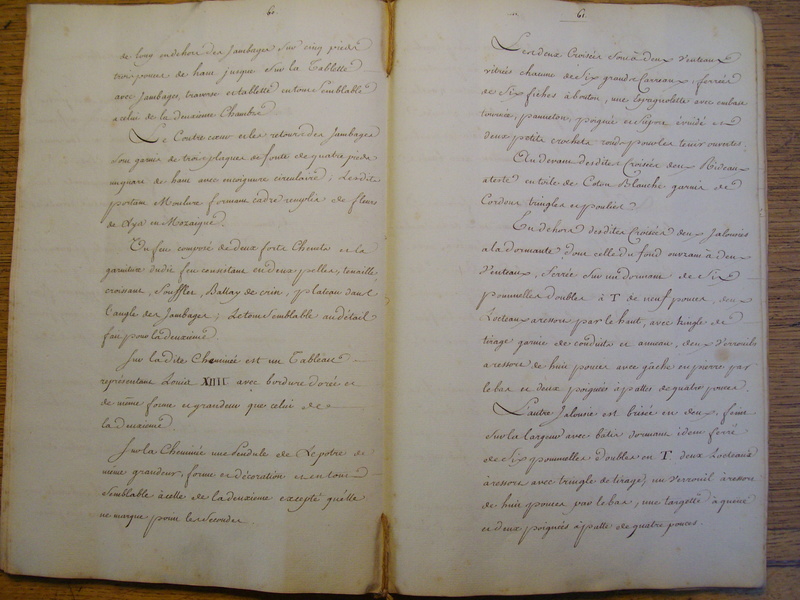 60.
de long en dehors des Jambages Sur cinq pieds
trois pouces de haut jusque Sur la Tablette
avec Jambages, traverse et tablette en tout Semblable
a celui de la deuxieme Chambre
Le Contre coeur et les retours des Jambages
Sont garnis de trois plaques de fonte de quatre pieds
mignare de haut avec encoignure circulaire; Lesdits
portant Moulure formant cadre remplie de fleurs
de Lys en Mozaïque.
Un feu composé de deux forts Chenets et la
garniture dudit feu consistant en deux pelles, tenaille
croissant, Soufflet, Ballay de crin, plateau dans
l'angle des Jambages, Le tout Semblable au détail
fait pour la deuxieme.
Sur la dite Cheminée est un Tableau
représentant Louis XIIII avec bordure dorée et
de même forme et grandeur que celui de
la deuxieme.
Sur la Cheminée une Pendule de Lepotre de
même grandeur, forme et décoration et en tout
Semblable à celle de la deuxieme excepté qu'elle
ne marque point les Secondes
61.
Les deux Croisées Sont à deux Venteaux
vitrées chacune de Six grands Carreaux, ferrées
de Six fiches à bouton, une Espagnolette avec embase
toureux, panneton, poignée en Supore évuidé et
deux petits crochets ronds pour les tenir ouvertes.
Au devant desdites Croisées deux Rideaux
attesté en toile de Coton Blanche garnis de
Cordons tringles et poulies
En dehors desdites Croisées deux Jalousies
a la dormante dont celle du fond ouvrant à deux
Venteaux, Ferrée Sur un dormant de Six
pommelles doubles à T de neuf pouces, deux
Locteaux a ressort par le haut, avec tringle de
tirage garnie de conduits et anneau, deux Verrouils
a ressort de huit pouces avec gâche en pierre par
le bas et deux poignées à pattes de quatre pouces.
L'autre Jalousie est brisée en deux feuilles
Sur la largeur avec bâtis dormant idem ferré
de Six pommelles doubles en T deux Locteaux
à ressort avec tringle de tirage, un Verrouil à ressort
de huit pouces par le bas, une targette à queue
et deux poignées à patte de quatre pouces.